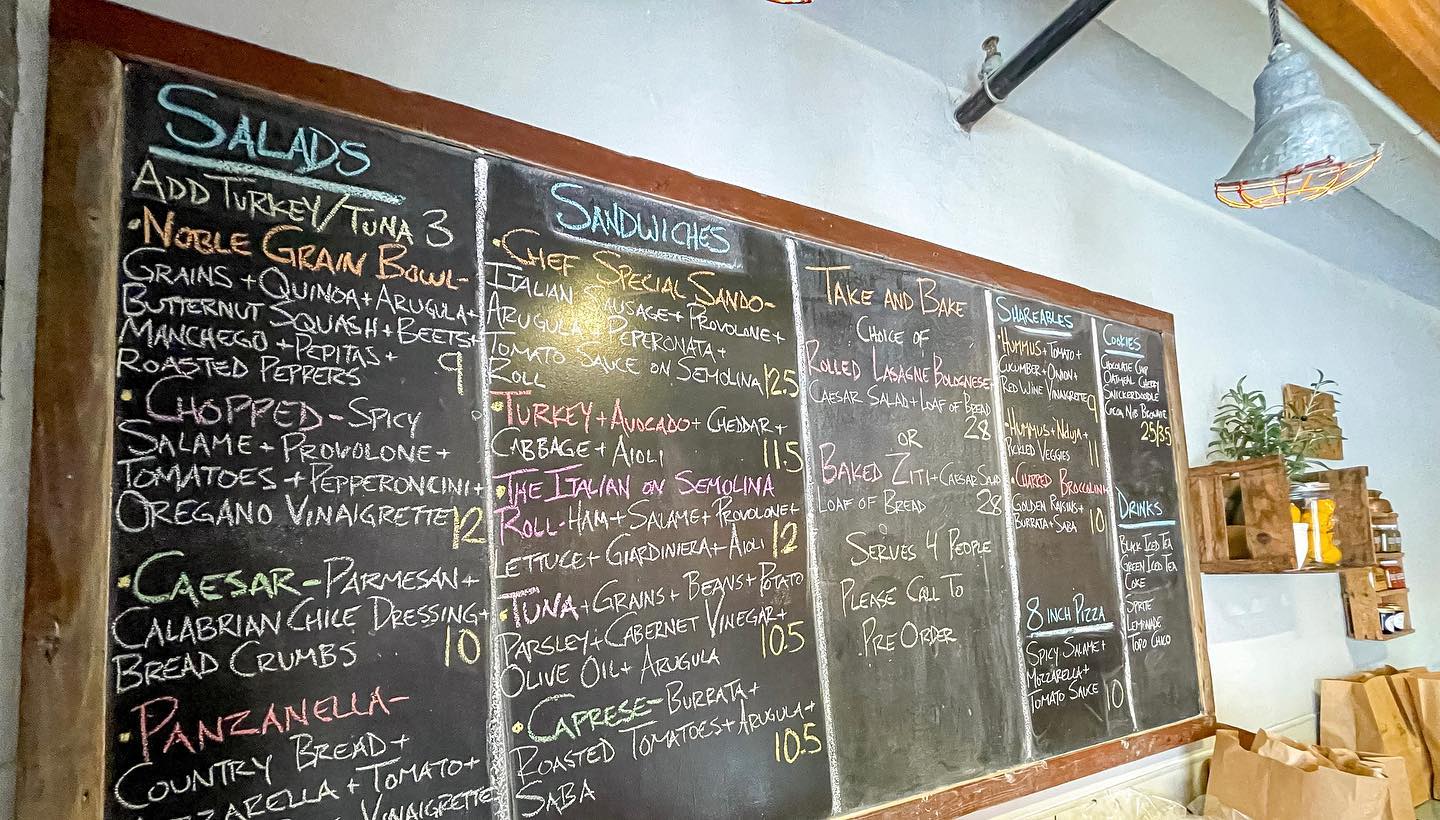 SALADS
ADD TURKEY/TUNA 3
•NOBLE GRAIN BOWL-
GRAINS+QUINOA+ARUGULA+
BUTTERNUT SQUASH+BEETS+
MANCHEGO+PEPITAS+
ROASTED PEPPERS 9
•CHOPPED-SPICY
SALAME+PROVOLONE+
TOMATOES+PEPPERONCINI+
OREGANO VINAIGRETTE 12
•CAESAR-PARMESAN+
CALABRIAN CHILE DRESSING+
BREAD CRUMBS 10
•PANZANELLA-
COUNTRY BREAD+
TOMATO+
VINAIGRETTE
SANDWICHES
•CHEF SPECIAL SANDO-
ITALIAN SAUSAGE+PROVOLONE+
ARUGULA+PEPERONATA+
TOMATO SAUCE ON SEMOLINA
ROLL 12.5
•TURKEY+AVOCADO+CHEDDAR+
CABBAGE+AIOLI 11.5
•THE ITALIAN ON SEMOLINA
ROLL-HAM+SALAME+PROVOLONE+
LETTUCE+GIARDINIERA+AIOLI 12
•TUNA+GRAINS+BEANS+POTATO
PARSLEY+CABERNET VINEGAR+
OLIVE OIL+ARUGULA 10.5
•CAPRESE-BURRATA+
ROASTED TOMATOES+ARUGULA+
SABA 10.5
TAKE AND BAKE
CHOICE OF
ROLLED LASAGNE BOLOGNESE+
CAESAR SALAD+LOAF OF BREAD
28
OR
BAKED ZITI+CAESAR SALAD
LOAF OF BREAD 28
SERVES 4 PEOPLE
PLEASE CALL TO
PRE ORDER
SHAREABLES
•HUMMUS+TOMATO+
CUCUMBER+ONION+
RED WINE VINAIGRETTE 9
•HUMMUS+NDUJA+
PICKLED VEGGIES 11
•CHARRED BROCCOLINI+
GOLDEN RAISINS+
BURRATA+SABA 10
8 INCH PIZZA
SPICY SALAME+
MOZZARELLA+
TOMATO SAUCE 10
COOKIES
CHOCOLATE CHIP
OATMEAL CHERRY
SNICKERDOODLE
COCOA NIB BROWNIE
2.5/3.5
DRINKS
BLACK ICED TEA
GREEN ICED TEA
COKE
SPRITE
LEMONADE
TOPO CHICO